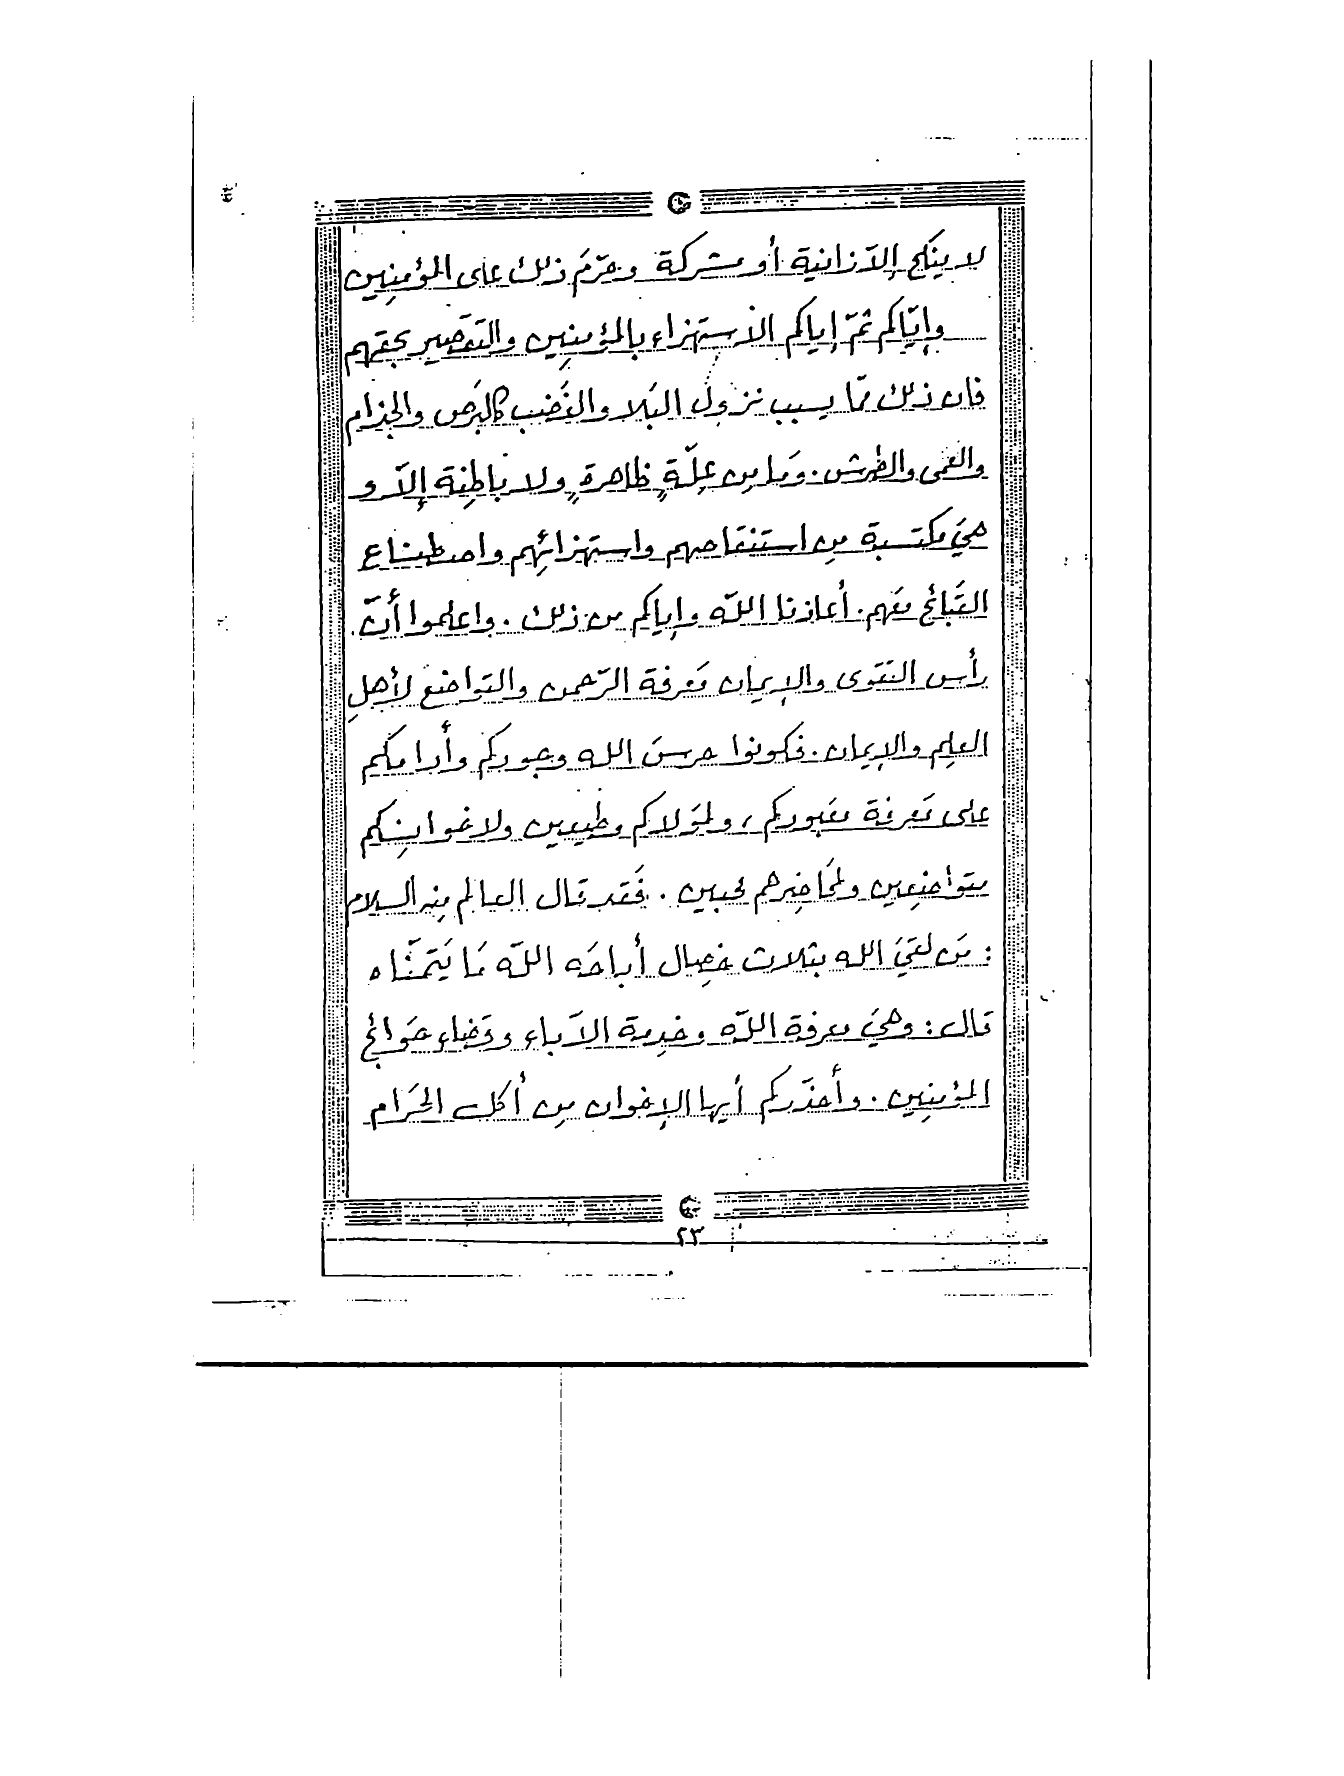 لا ينكح إلاّ زانية أو مشركة وحرّمَ ذلك على المؤمِنِين
وإيّاكم ثمّ إياكم الاستهزاء بالمؤمِنِين والتقصير بحقهم
فان ذلك ممّا يسبب نزول البَلا والغَضب كالبَرص والجذام
والعمى والطرش. وَما مِن عِلّةٍ ظاهرةٍ ولا باطِنة إلاّ و
هيَ مكتسبة مِن استنقاصهم واستهزائِهم واصطناع
القَبائح معَهم. أعاذنا اللّه وإياكم من ذلك. واعلموا أنّ
رأس التقوى والإيمان مَعرفة الرّحمن والتواضع لأهلِ
العِلم والإيمان. فكونوا حرسَ الله وجودكم وأدامكم
على مَعرفة معَبودكم، ولموَلاكم مطيعين ولاخوانِكم
متواضِعين ولمحَاضِرهم محبين. فقَد قال العالم مِنه السلام
: مَن لقيَ الله بثلاث خصِال أباحَه اللّه مَا يَتمنّاه
قال: وهيَ معرفة اللّه وخدِمة الآباء وقَضاء حَوائج
المؤمنِين. وأحذّركم أيها الإخوان مِن أكل الحَرام
٢٣